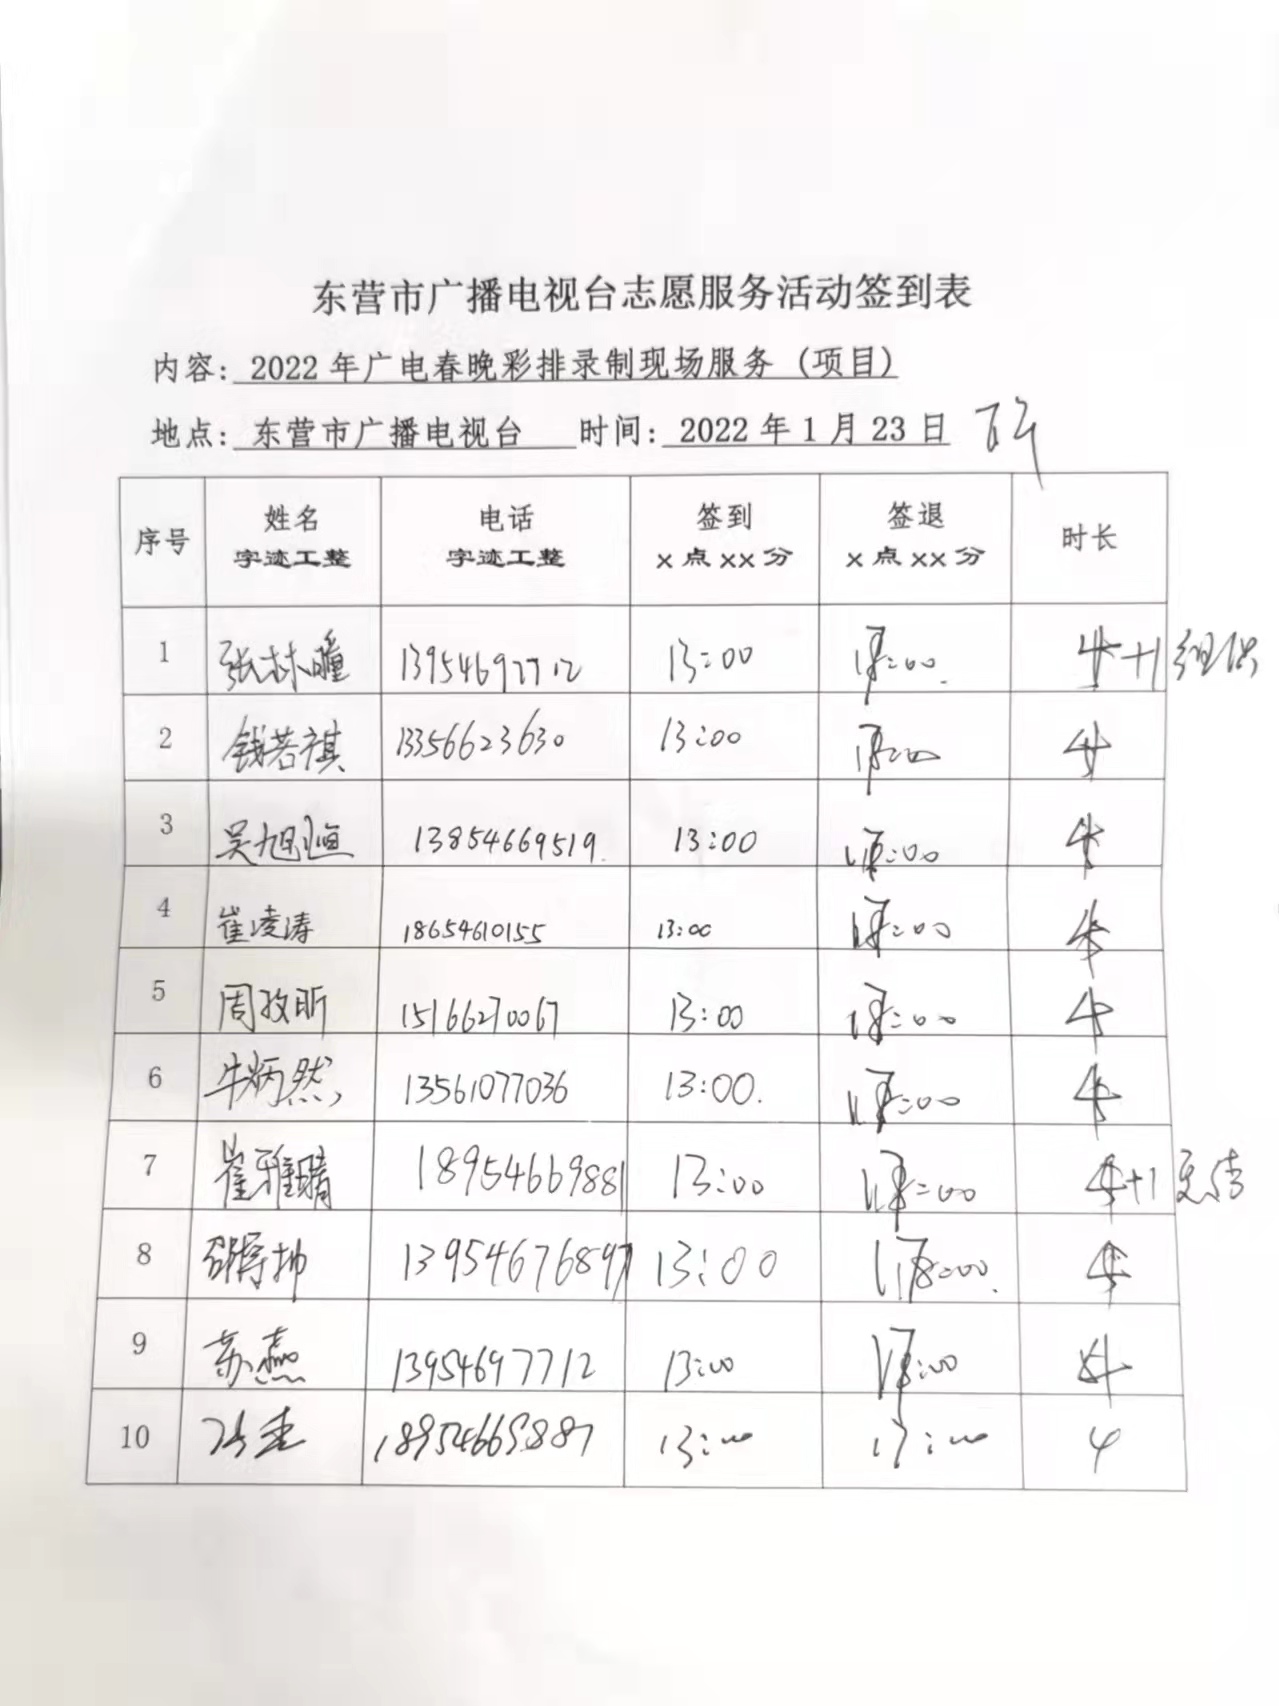 东营市广播电视台志愿服务活动签到表
内容: 2022年广电春晚彩排录制现场服务 (项目)
地点: 东营市广播电视台 时间: 2022年1月23日
序号 姓名 电话 签到 签退 时长
字迹工整 字迹工整 X点XX分 X点XX分
1 张林曈 13954697712 13:00 :00 4+1 组织
2 钱若祺 13356623630 13:00 4
3 吴旭 13854669519 13:00 :00 4
4 崔凌涛 18654610155 13:00 :00 4
5 周孜昕 15166270067 13:00 :00 4
6 牛炳然 13561077036 13:00 :00 4
7 崔雅晴 18954669881 13:00 :00 4+1
8 13954676897 13:00 :00 4
9 苏燕 13954697712 13:00 :00 4
10 13:00 17:00 4